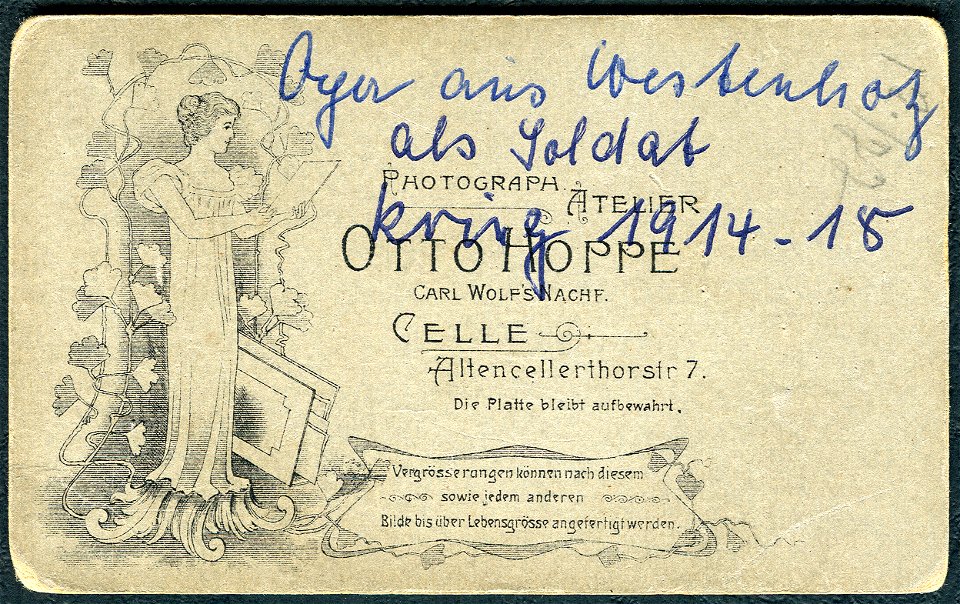 Oger aus Westenholz
als Soldat
PHOTOGRAPH. ATELIER
krieg 1914-18
OTTO HOPPE
CARL WOLF'S NACHF.
CELLE
Altencellerthorstr 7.
Die Platte bleibt aufbewahrt.
Vergrösserungen können nach diesem
sowie jedem anderen
Bilde bis über Lebensgrösse angefertigt werden.